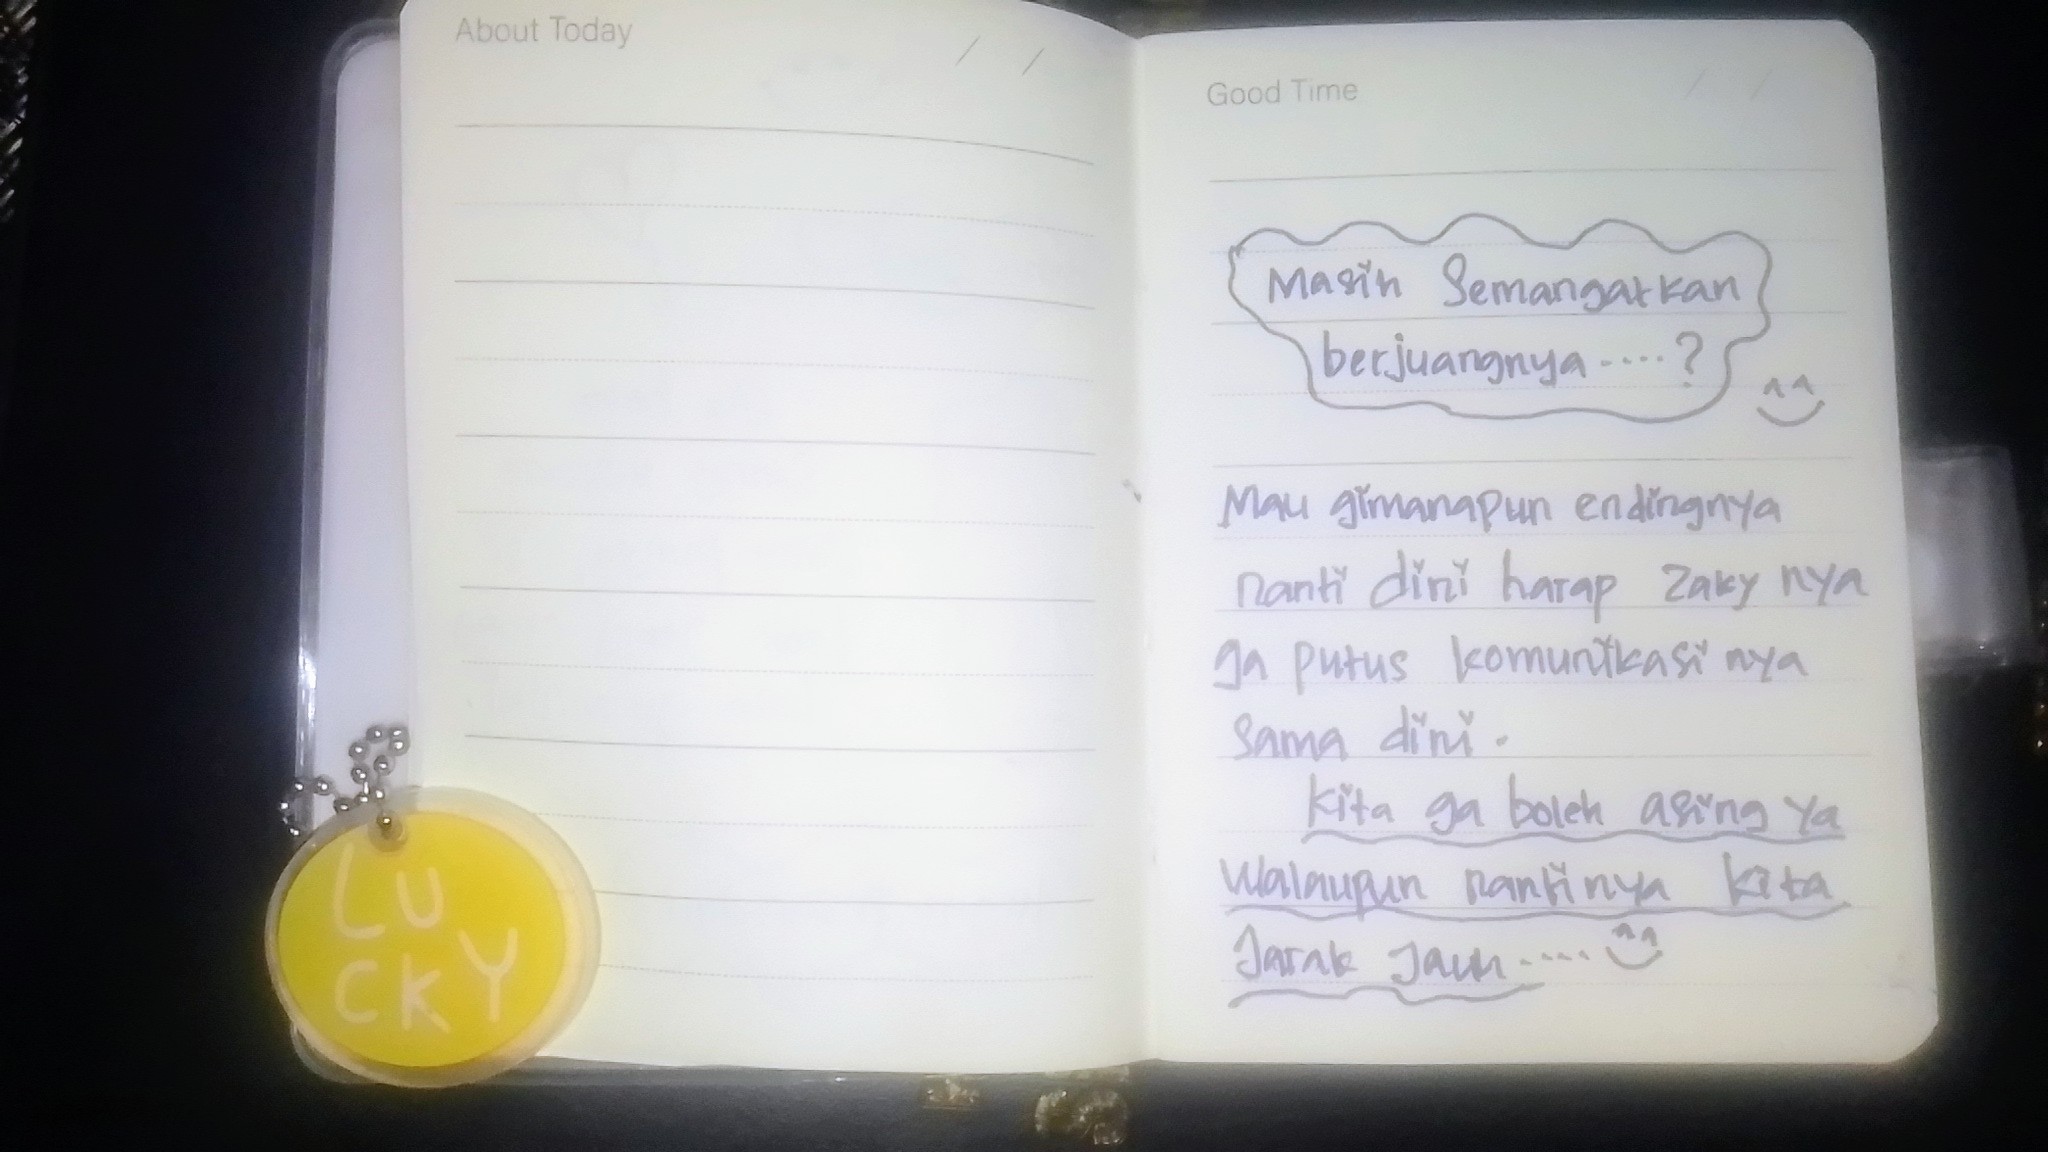 About Today / /
Good Time / /
Masih Semangatkan
berjuangnya.....?
Mau gimanapun endingnya
nanti dini harap zaky nya
ga putus komunikasi nya
sama dini.
kita ga boleh asing ya
walaupun nantinya kita
Jarak Jauh.....
LU
CKY